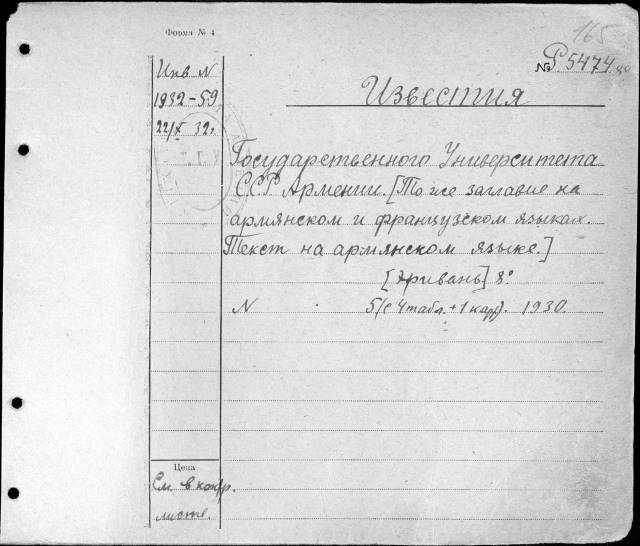 Форма № 4
165
№ Р.5474
Инв N
1932-59
22/X 32г.
Известия
Государственного Университета
ССР Армении. [То же заглавие на
армянском и французском языках.
Текст на армянском языке.]
[Эривань] 8°
N 5 (с 4 табл. + 1 кар). 1930.
Цена
См. в контр.
листе.